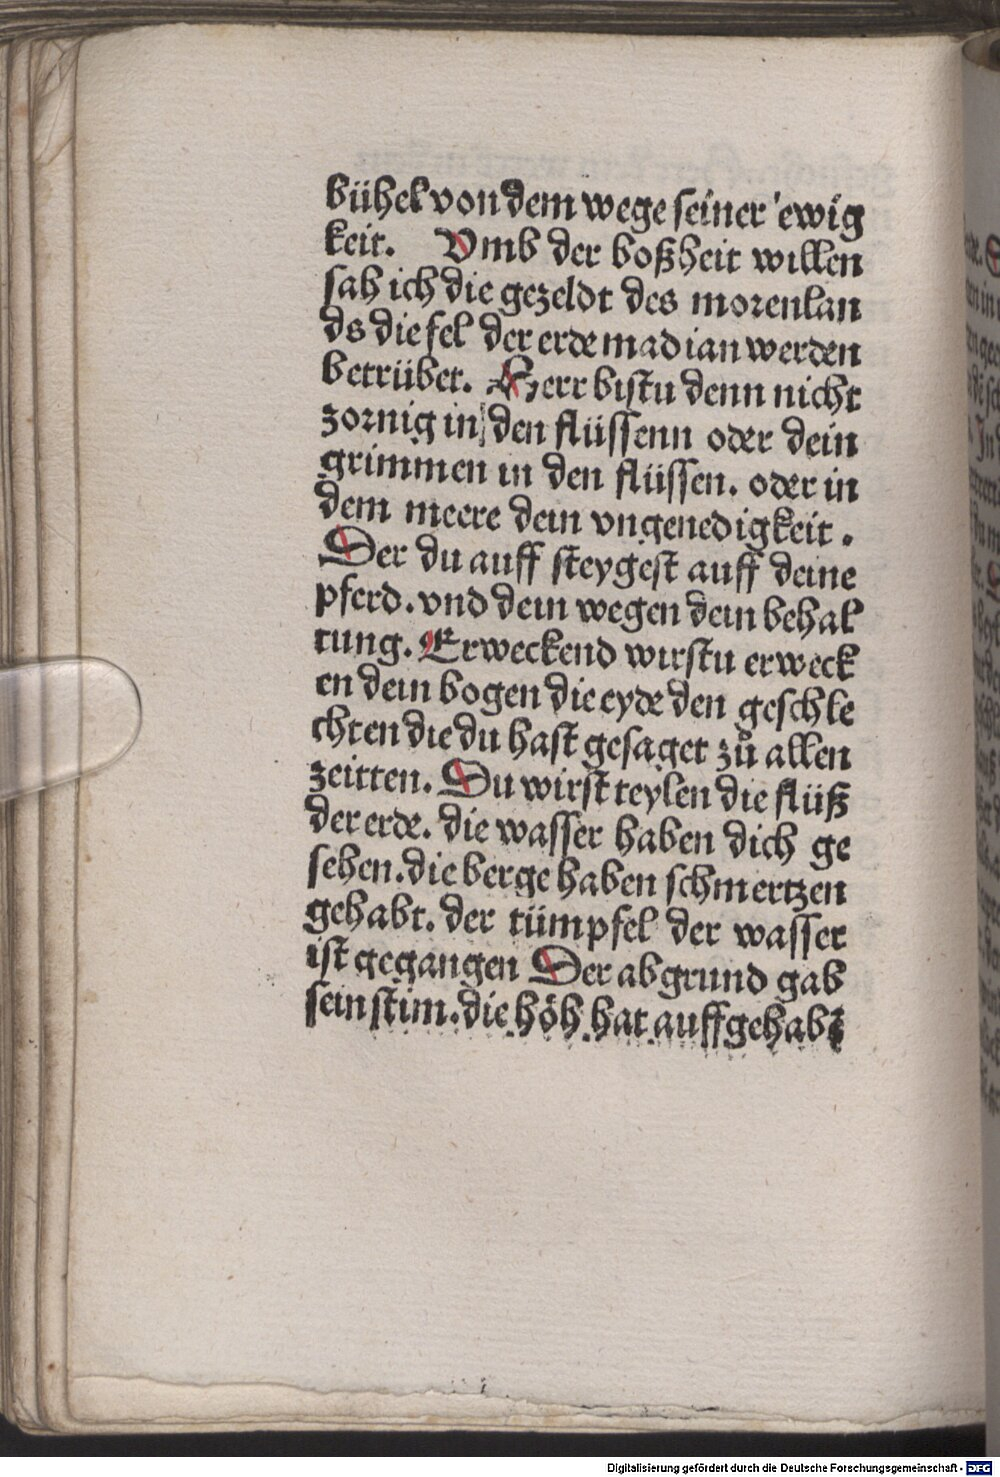 bühel von dem wege seiner ewig
keit. Vmb der boßheit willen
sah ich die gezeldt des morenlan
ds die fel der erde madian werden
betrübet. Herr bistu denn nicht
zornig in den flüssenn oder dein
grimmen in den flüssen. oder in
dem meere dein vngenedigkeit.
Der du auff steygest auff deine
pferd. vnd dein wegen dein behal
tung. Erweckend wirstu erweck
en dein bogen die eyde den geschle
chten die du hast gesaget zů allen
zeitten. Du wirst teylen die flüß
der erde. die wasser haben dich ge
sehen. die berge haben schmertzen
gehabt. der tümpfel der wasser
ist gegangen Der abgrund gab
sein stim. die höh hat auffgehabt
Digitalisierung gefördert durch die Deutsche Forschungsgemeinschaft - DFG